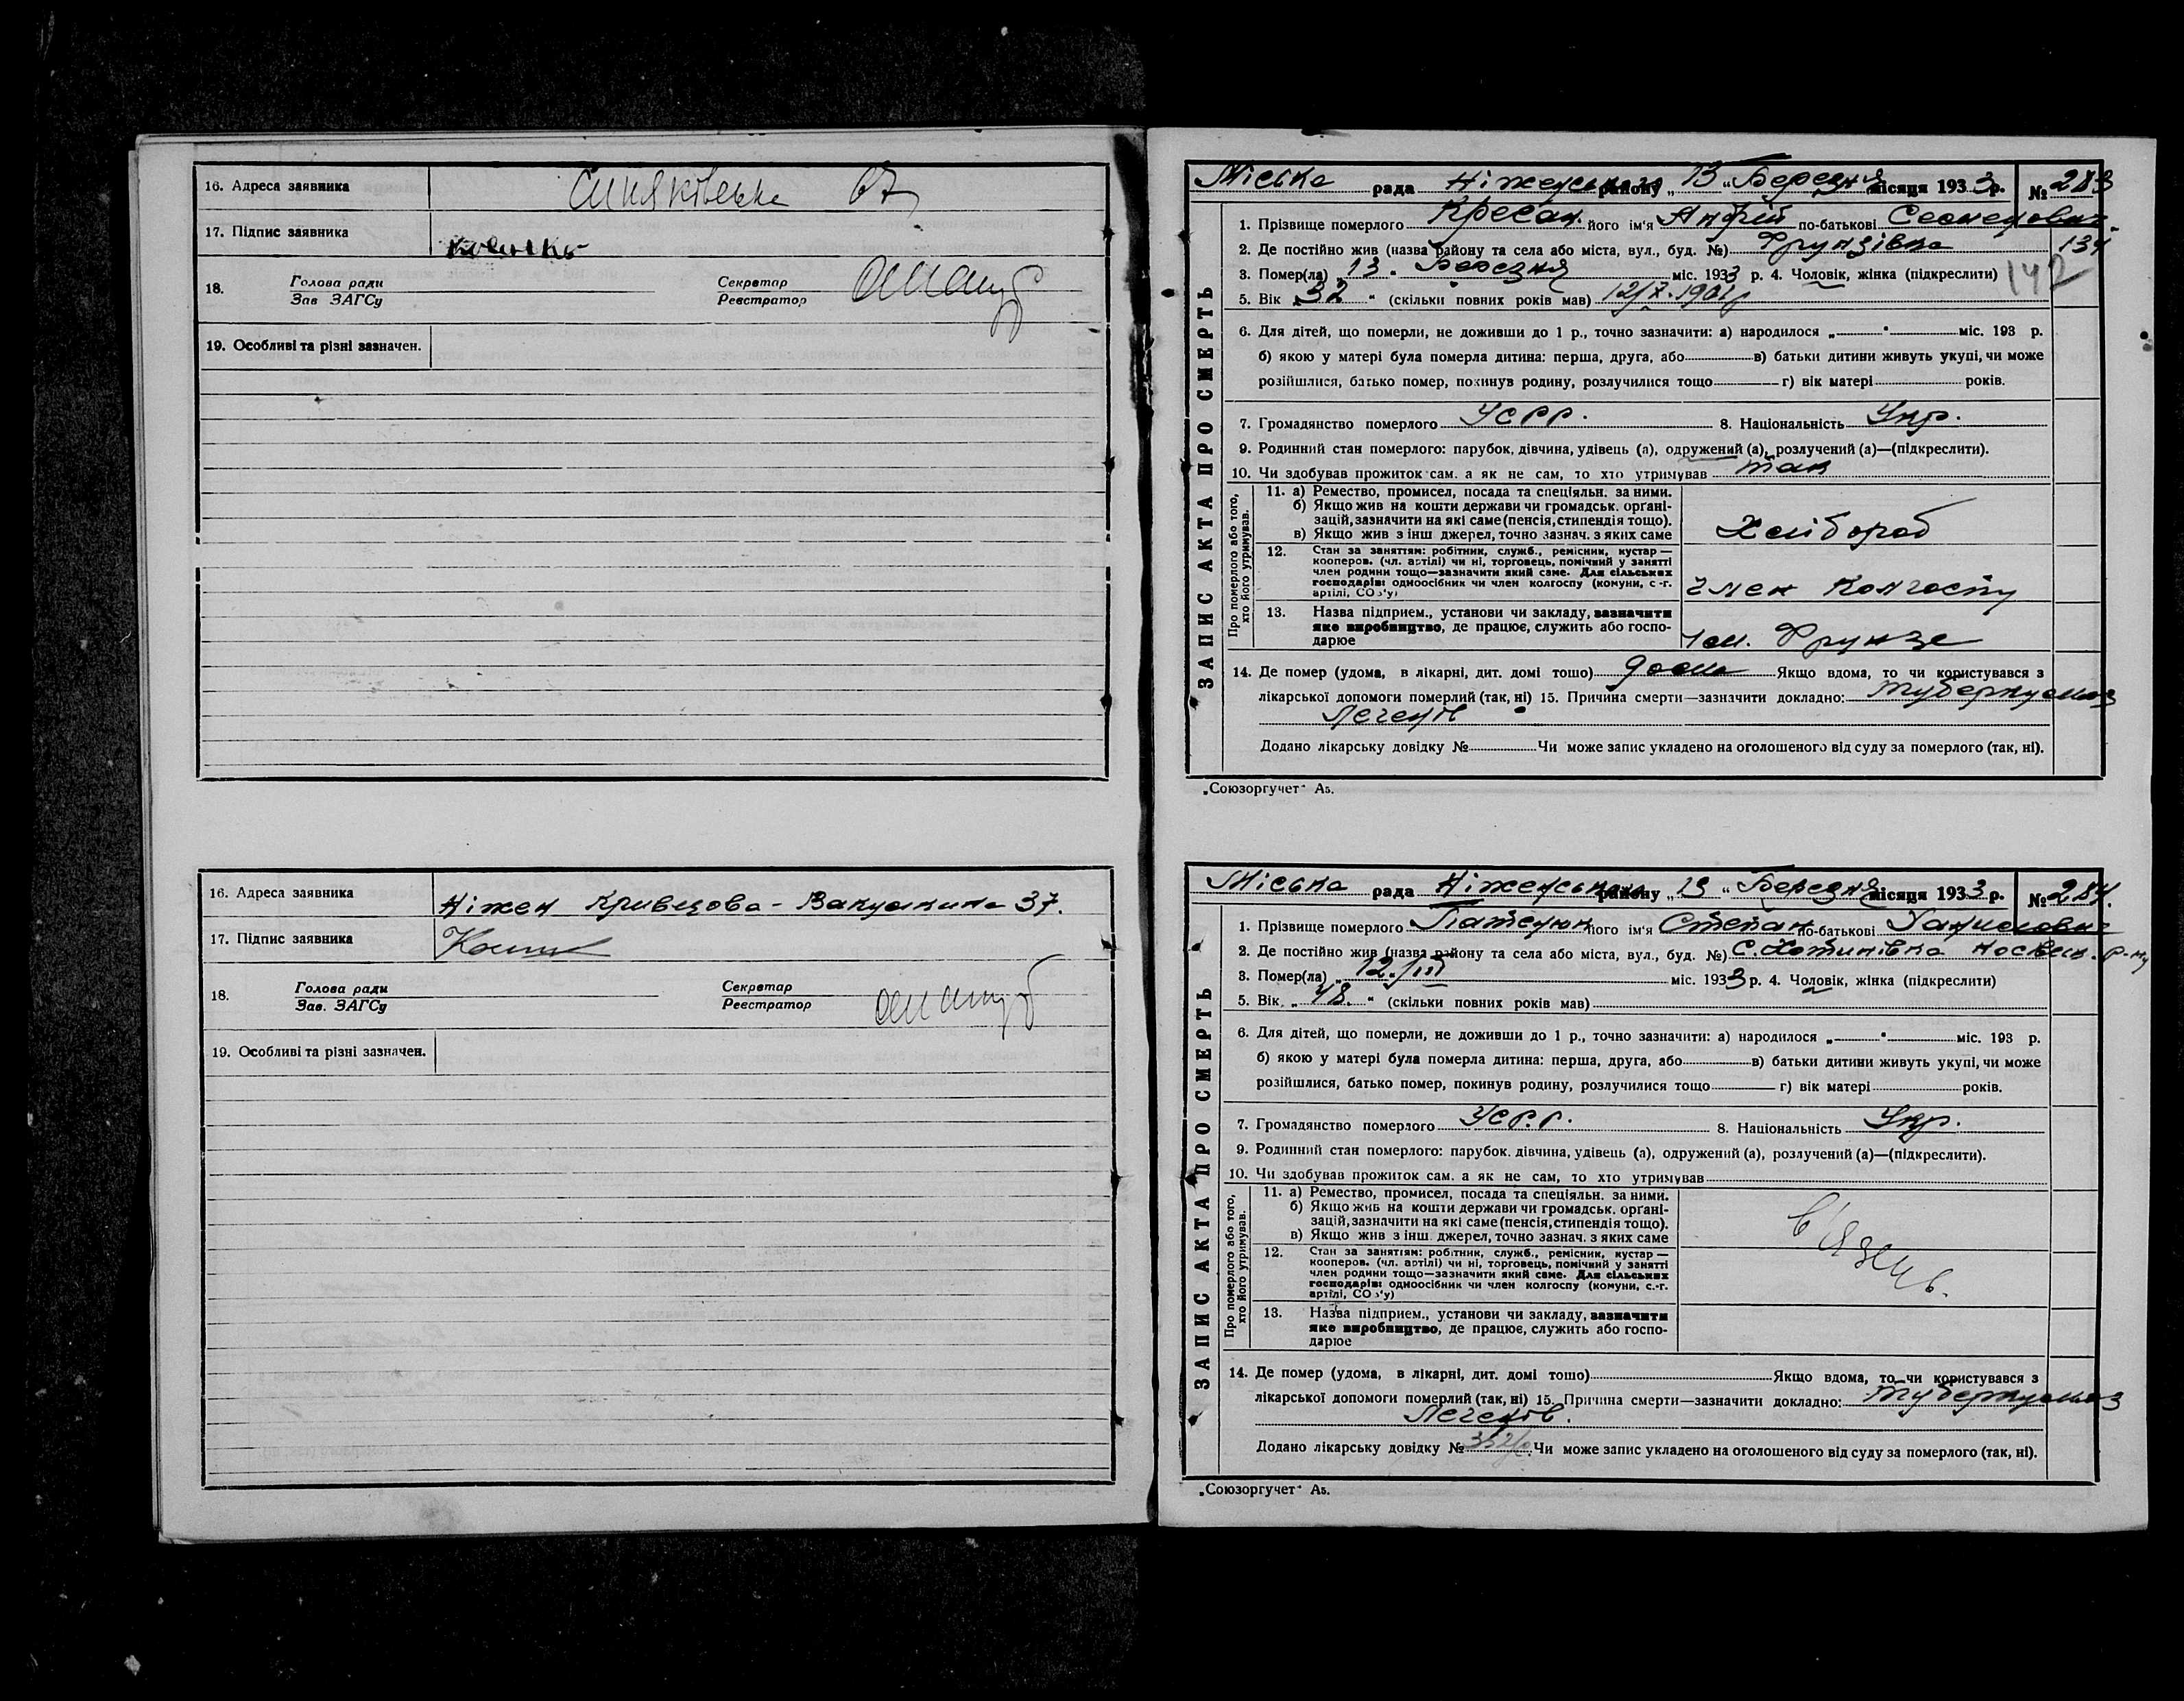 16. Адреса заявника Синяківська 67
17. Підпис заявника
18. Голова ради
Зав ЗАГСу
Секретар
Реєстратор
19. Особливі та різні зазначен.
16. Адреса заявника Ніжен Кривецова - Вакуленка 37.
17. Підпис заявника
18. Голова ради
Зав. ЗАГСу
Секретар
Реєстратор
19. Особливі та різні зазначен.
ЗАПИС АКТА ПРО СМЕРТЬ
Міська рада Ніженського району „ 13 “ Березня місяця 1933 р. № 283
1. Прізвище померлого Кресан. його ім'я Андрій по-батькові
2. Де постійно жив (назва району та села або міста, вул., буд. №) Фрунзівка 134
3. Помер(ла) „ 13 “ Березня міс. 1933 р. 4. Чоловік, жінка (підкреслити) 142
5. Вік „ 32 “ (скільки повних років мав)
6. Для дітей, що померли, не доживши до 1 р., точно зазначити: а) народилося „ “ міс. 193 р.
б) якою у матері була померла дитина: перша, друга, або в) батьки дитини живуть укупі, чи може
розійшлися, батько помер, покинув родину, розлучилися тощо г) вік матері років.
7. Громадянство померлого УСРР. 8. Національність Укр.
9. Родинний стан померлого: парубок, дівчина, удівець (а), одружений (а), розлучений (а)—(підкреслити).
10. Чи здобував прожиток сам, а як не сам, то хто утримував так
Про померлого або того,
хто його утримував.
11. а) Ремество, промисел, посада та спеціяльн. за ними.
б) Якщо жив на кошти держави чи громадськ. орґані-
зацій, зазначити на які саме (пенсія, стипендія тощо).
в) Якщо жив з інш джерел, точно зазнач. з яких саме
Хлібороб
12. Стан за заняттям: робітник, служб., ремісник, кустар —
кооперов. (чл. артілі) чи ні, торговець, помічний у занятті
член родини тощо—зазначити який саме. Для сільських
господарів: одноосібник чи член колгоспу (комуни, с.-г.
артілі, СОЗ'у)
член колгоспу
13. Назва підприєм., установи чи закладу, зазначити
яке виробництво, де працює, служить або госпо-
дарює
ім. Фрунзе
14. Де помер (удома, в лікарні, дит. домі тошо) дома Якщо вдома, то чи користувався з
лікарської допомоги померлий (так, ні) 15. Причина смерти—зазначити докладно: туберкульоз
легенів
Додано лікарську довідку № Чи може запис укладено на оголошеного від суду за померлого (так, ні).
„Союзоргучет“ А5.
ЗАПИС АКТА ПРО СМЕРТЬ
Міська рада Ніженського району „ 13 “ Березня місяця 1933 р. № 284.
1. Прізвище померлого Патенюк його ім'я Степан по-батькові Данилович
2. Де постійно жив (назва району та села або міста, вул., буд. №) С. Хотинівка Носівськ. р-ну
3. Помер(ла) „ 12./III міс. 1933 р. 4. Чоловік, жінка (підкреслити)
5. Вік „ 48. “ (скільки повних років мав)
6. Для дітей, що померли, не доживши до 1 р., точно зазначити: а) народилося „ “ міс. 193 р.
б) якою у матері була померла дитина: перша, друга, або в) батьки дитини живуть укупі, чи може
розійшлися, батько помер, покинув родину, розлучилися тощо г) вік матері років.
7. Громадянство померлого УСР.Р. 8. Національність Укр.
9. Родинний стан померлого: парубок, дівчина, удівець (а), одружений (а), розлучений (а)—(підкреслити).
10. Чи здобував прожиток сам, а як не сам, то хто утримував
Про померлого або того,
хто його утримував.
11. а) Ремество, промисел, посада та спеціяльн. за ними.
б) Якщо жив на кошти держави чи громадськ. орґані-
зацій, зазначити на які саме (пенсія, стипендія тощо).
в) Якщо жив з інш. джерел, точно зазнач. з яких саме
12. Стан за заняттям: робітник, служб., ремісник, кустар —
кооперов. (чл. артілі) чи ні, торговець, помічний у занятті
член родини тощо—зазначити який саме. Для сільських
господарів: одноосібник чи член колгоспу (комуни, с.-г.
артілі, СОЗ'у)
в'язень.
13. Назва підприєм., установи чи закладу, зазначити
яке виробництво, де працює, служить або госпо-
дарює
14. Де помер (удома, в лікарні, дит. домі тошо) Якщо вдома, то чи користувався з
лікарської допомоги померлий (так, ні) 15. Причина смерти—зазначити докладно: туберкульоз
легенів.
Додано лікарську довідку № Чи може запис укладено на оголошеного від суду за померлого (так, ні).
„Союзоргучет“ А5.